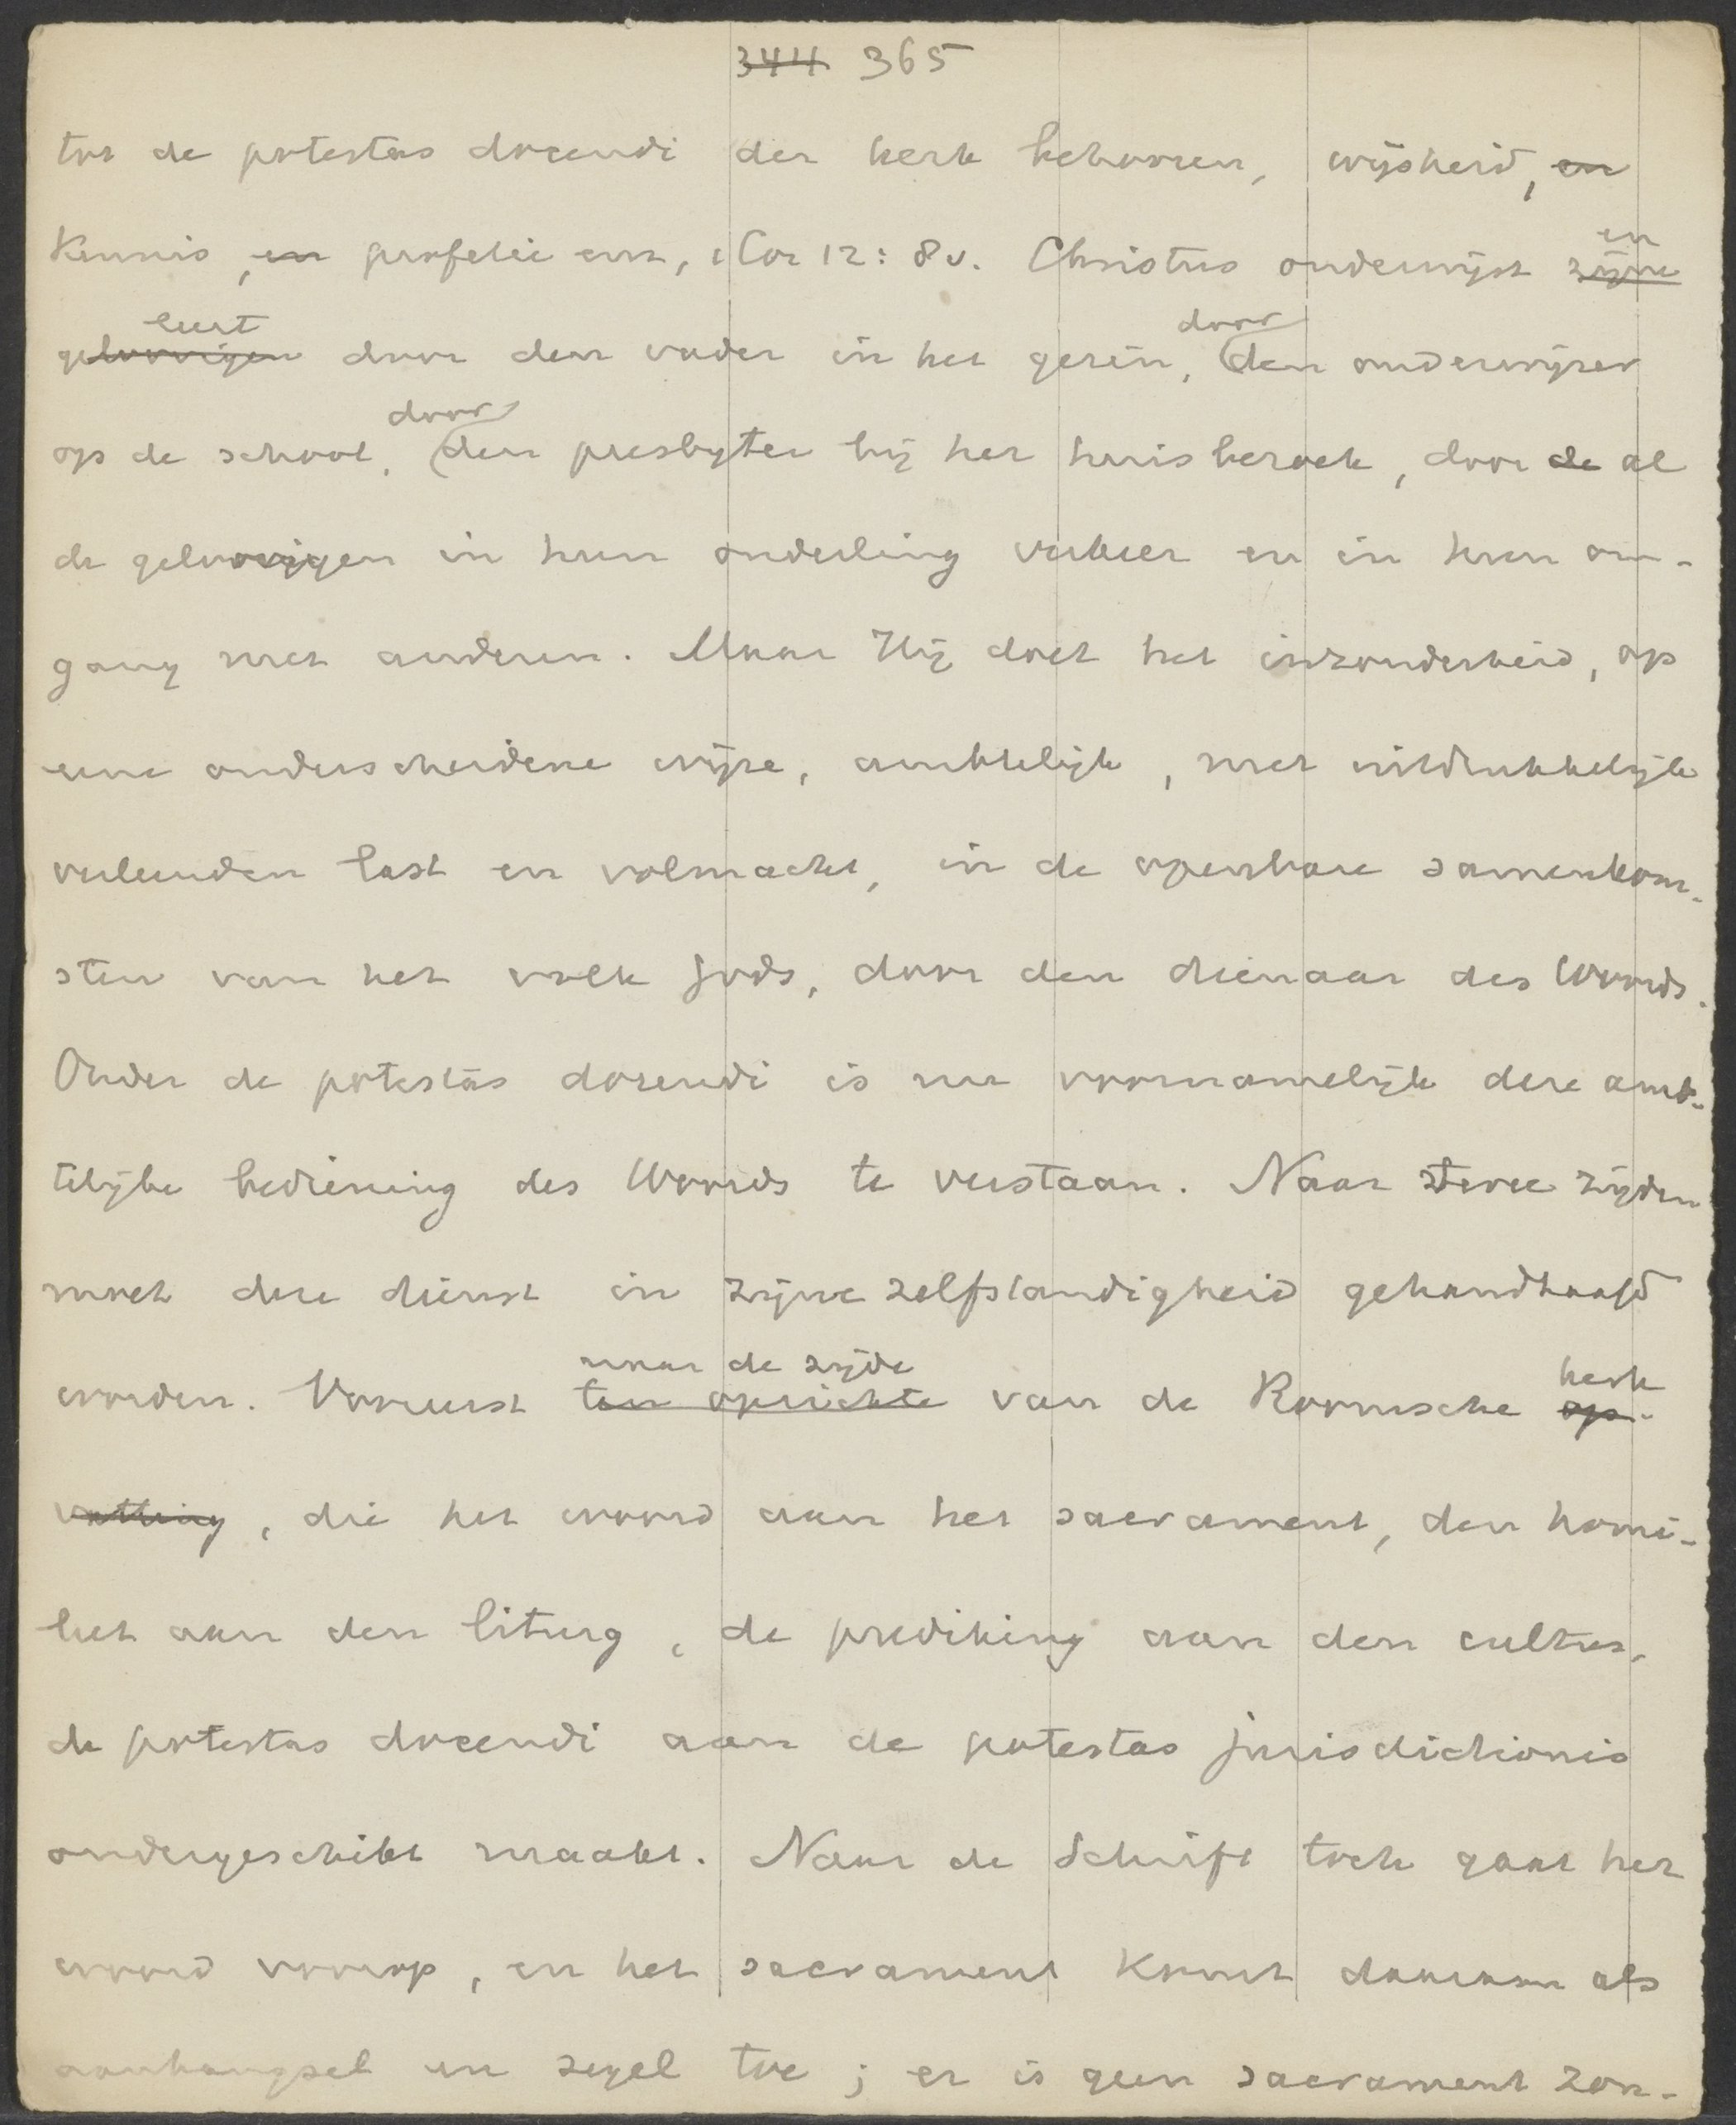 344 365
tot de potestas docendi der kerk behooren, wijsheid, en
kennis, en profetie enz, 1 Cor 12: 8v. Christus onderwijst zijne en
geloovigen leert door den vader in het gezin, door den onderwijzer
op de school, door den presbyter bij het huisbezoek, door de al
de geloovigen in hun onderling verkeer en in hun om-
gang met anderen. Maar Hij doet het inzonderheid, op
eene onderscheidene wijze, ambtelijk, met uitdrukkelijk
verleenden last en volmacht, in de openbare samenkom-
sten van het volk Gods, door den dienaar des Woords.
Onder de potestas docendi is nu voornamelijk deze amb-
telijke bediening des Woords te verstaan. Naar twee zijden
moet deze dienst in zijne zelfstandigheid gehandhaafd
worden. Vooreerst ten opzichte naar de zijde van de Roomsche op- kerk
vatting, die het woord aan het sacrament, den homi-
leet aan den liturg, de prediking aan den cultus,
de potestas docendi aan de potestas jurisdictionis
ondergeschikt maakt. Naar de Schrift toch gaat het
woord voorop, en het sacrament komt daaraan als
aanhangsel en zegel toe; er is geen sacrament zon-